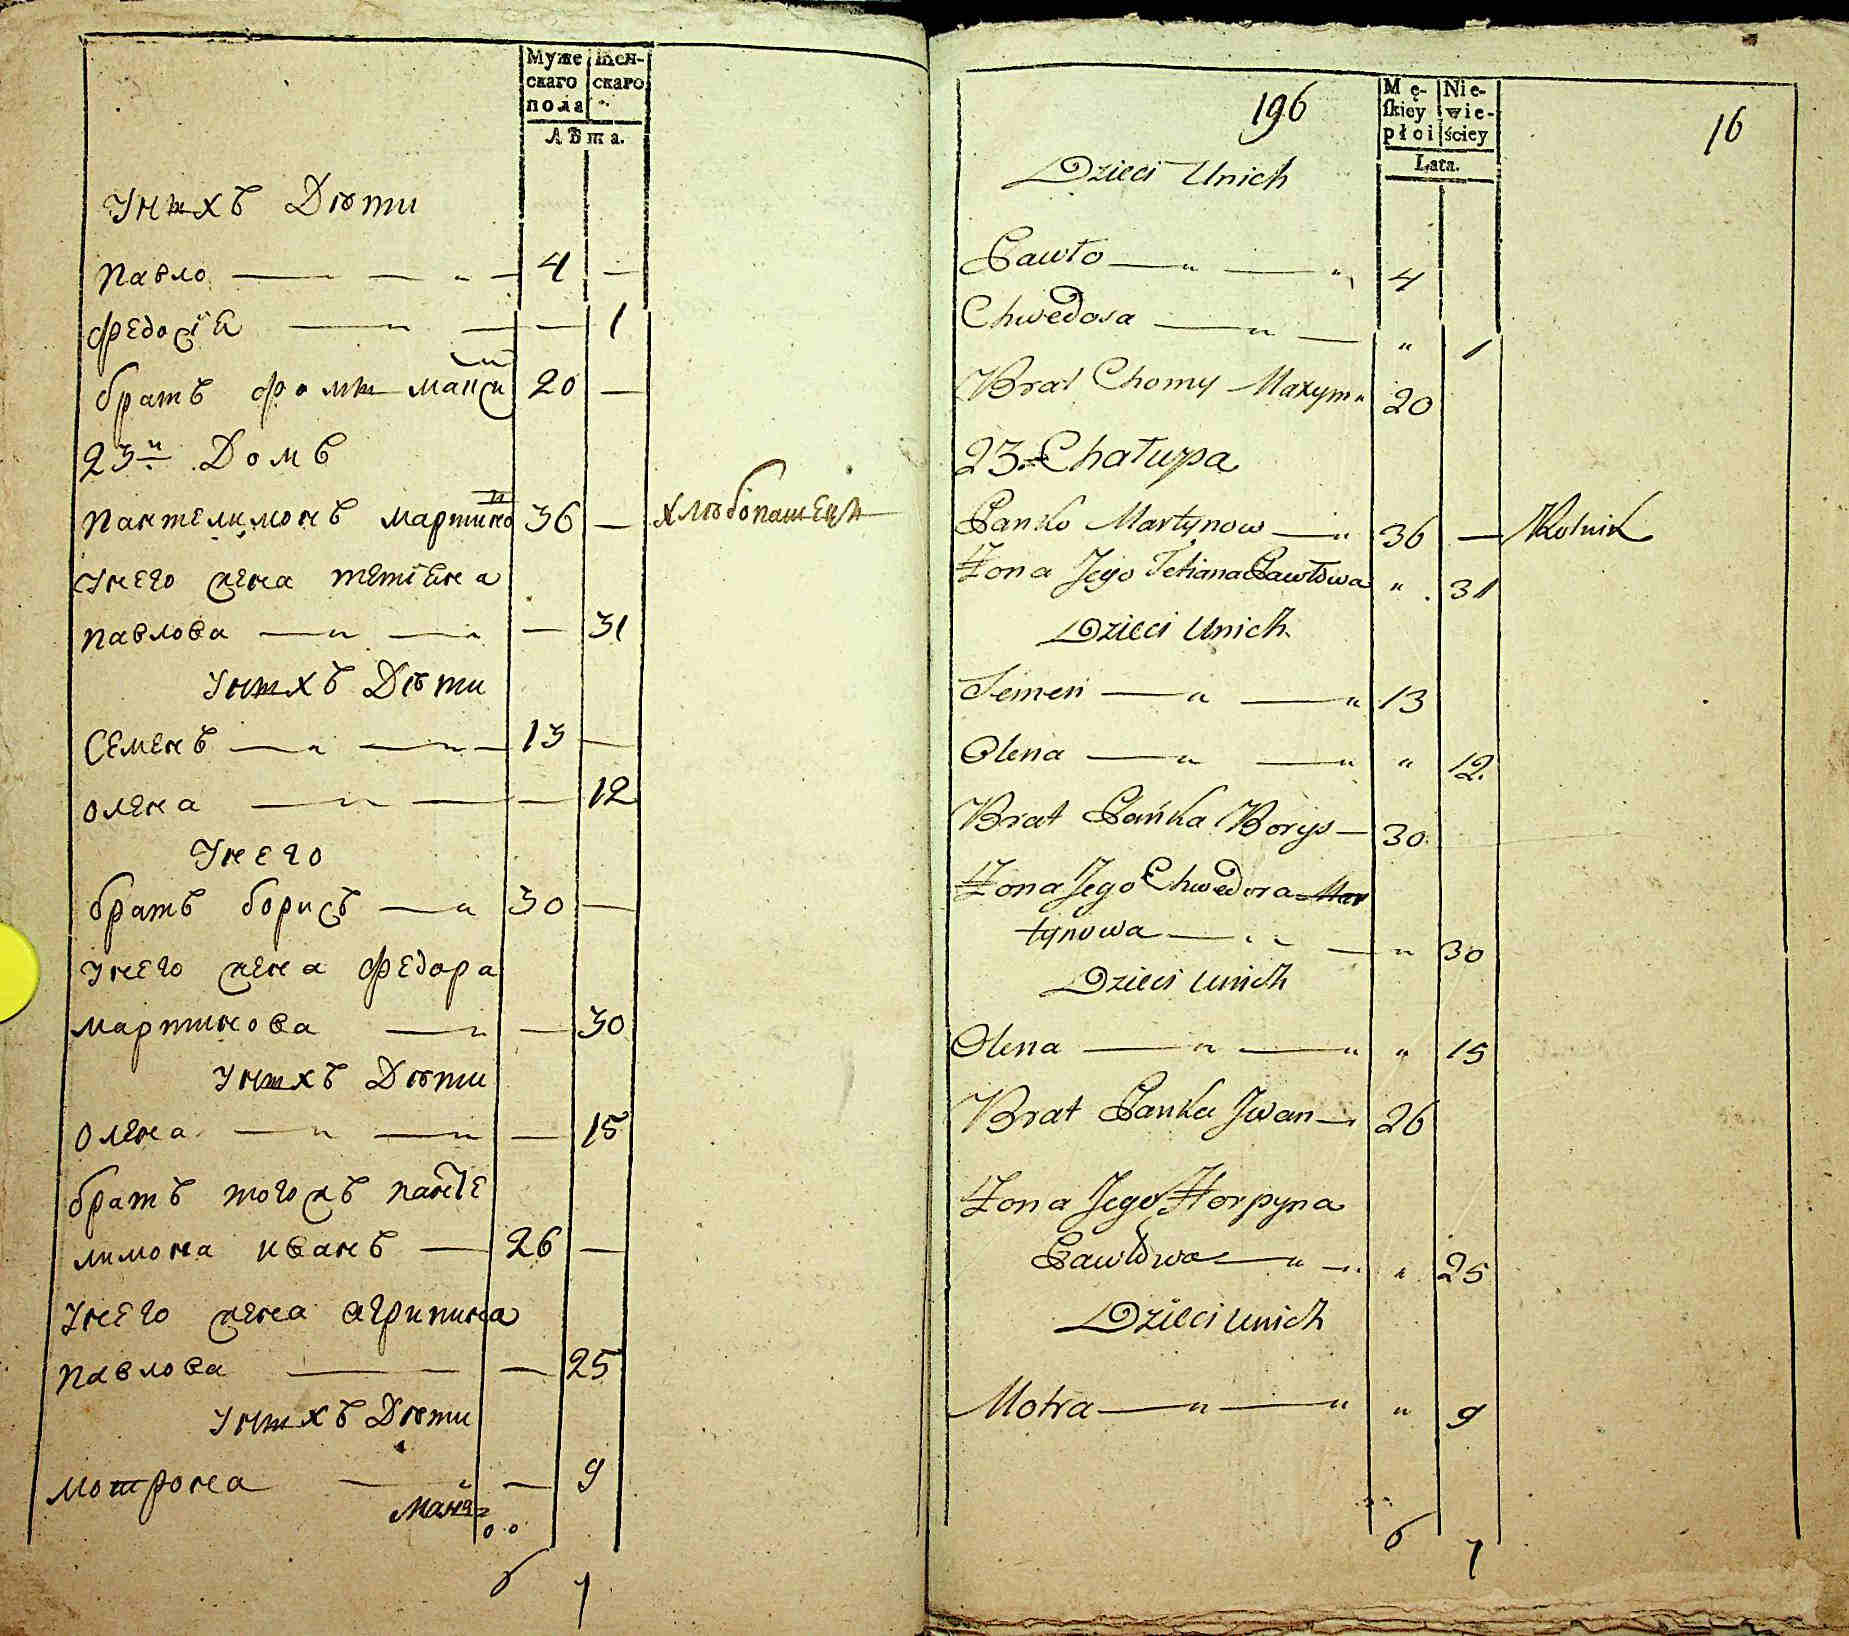 Муже Жен-
скаго скаго
пола
Лѣта.
Унихъ Дѣти
Павло 4 —
Федосїя — 1
братъ Фоми Макси 20 —
23й Домъ
Пантелимонъ Мартино 36 — хлѣбопашецъ
Унего жена тетїяна
Павлова — 31
Унихъ Дѣти
Семенъ 13 —
Олена — 12
Унего
братъ борисъ 30 —
Унего жена Федора
Мартинова — 30
Унихъ Дѣти
Олена — 15
братъ тогожъ Панте
лимона иванъ 26 —
Унего жена агрипина
Павлова — 25
Унихъ Дѣти
Мотрона — 9
6 7
196
16
Mę- Nie-
skiey wie-
płci ściey
Lata.
Dzieci Unich
Pawło 4
Chwedosa " 1
Brat Chomy Maxym 20
23. Chałupa
Panko Martynow 36 — Rolnik
Żona Jego Tetiana Pawłowa " 31
Dzieci Unich
Semen 13
Olena " 12
Brat Pańka Borys 30
Żona Jego Chwedora Mar
tynowa " 30
Dzieci Unich
Olena " 15
Brat Panka Jwan 26
Żona Jego Horpyna
Pawłowa " 25
Dzieci Unich
Motra " 9
6 7